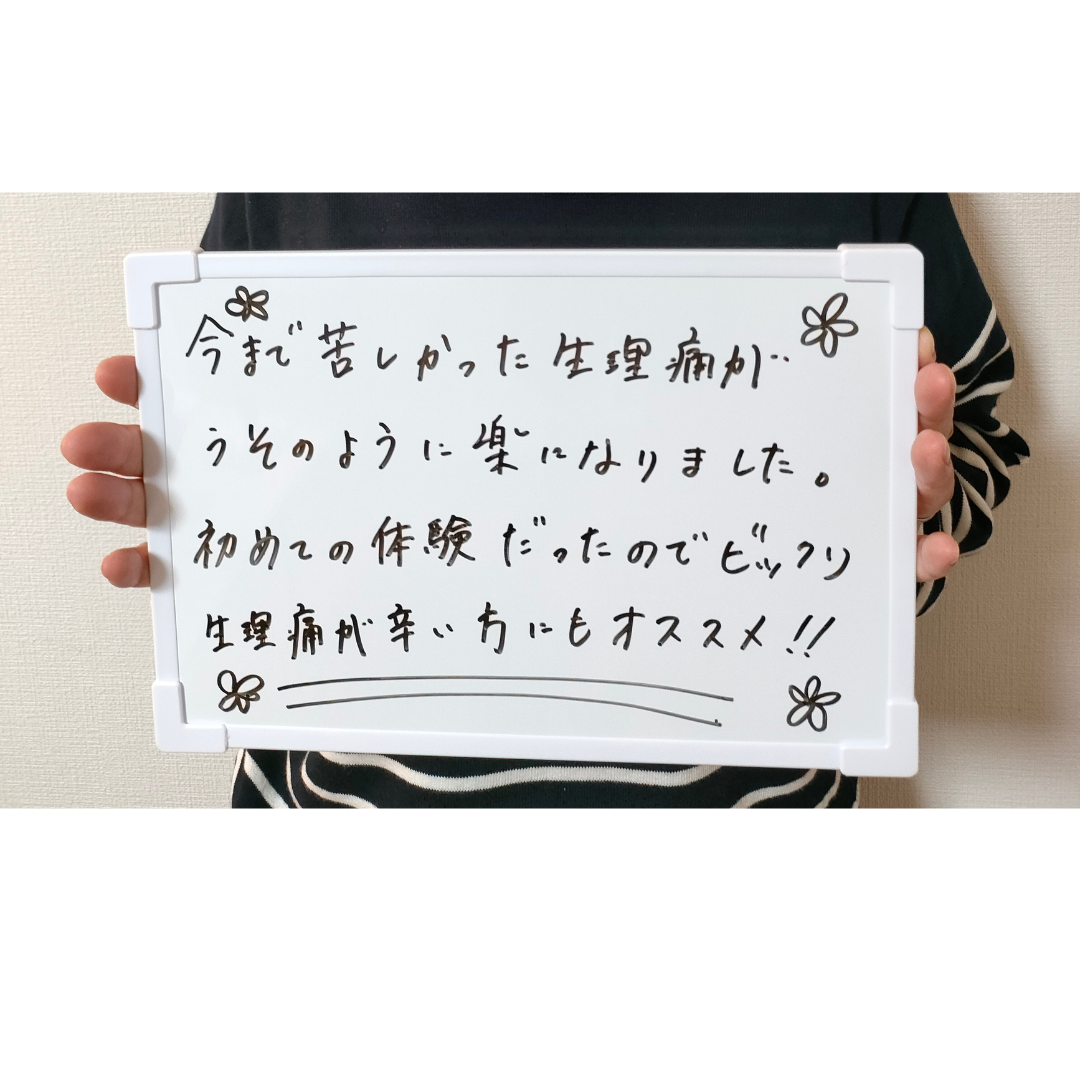 今まで苦しかった生理痛が
うそのように楽になりました。
初めての体験だったのでビックリ
生理痛が辛い方にもオススメ!!